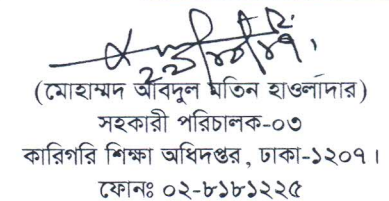 (মোহাম্মদ আবদুল মতিন হাওলাদার)
সহকারী পরিচালক-০৩
কারিগরি শিক্ষা অধিদপ্তর, ঢাকা-১২০৭।
ফোনঃ ০২-৮১৮১২২৫